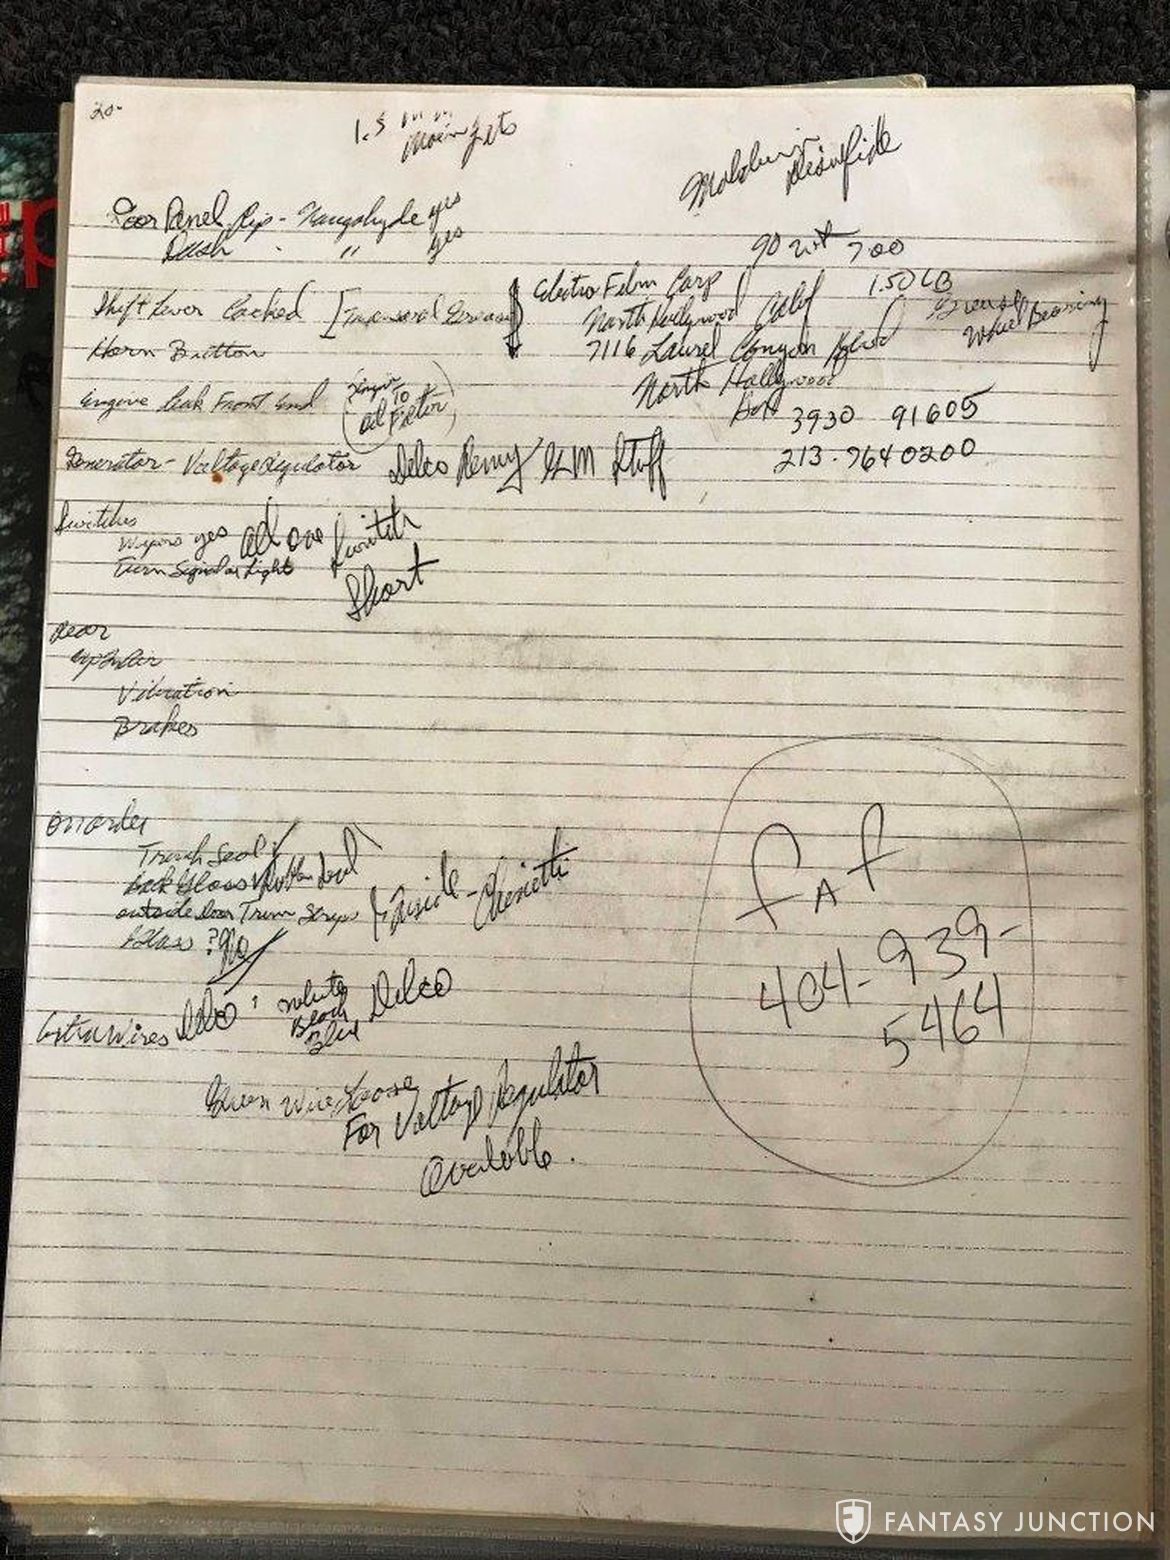 20-
1.3 mm
Main Jets
Molybdenum
Disulfide
Door Panel Rip - Naugahyde yes
Dash " " yes
90 wt 700
Electro Film Corp
1.50 LB
Shift Lever Cocked
North Hollywood Calif
Grease
Wheel Bearing
Horn Button
7116 Laurel Canyon Blvd
North Hollywood
Engine Leak Front End
TO
Oil Filter
Box 3930 91605
Generator - Voltage Regulator Delco Remy GM Stuff
213-7640200
Switches
Wipers yes all one Switch
Turn Signal or Lights
Short
Rear
Vibration
Brakes
on order
Trunk Seal
Back Glass Rubber Seal
outside Door Trim Strips Inside -
Glass ? No
FAF
404-939-
5464
Extra Wires Delco White Delco
Black
Blue
Green Wire Loose
For Voltage Regulator
Available.
FANTASY JUNCTION